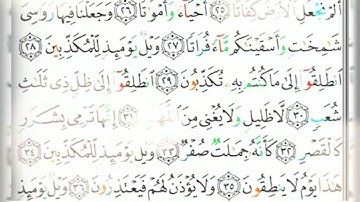 أَلَمْ نَجْعَلِ الْأَرْضَ كِفَاتًا ٢٥ أَحْيَاءً وَأَمْوَاتًا ٢٦ وَجَعَلْنَا فِيهَا رَوَاسِيَ
شَامِخَاتٍ وَأَسْقَيْنَاكُم مَّاءً فُرَاتًا ٢٧ وَيْلٌ يَوْمَئِذٍ لِّلْمُكَذِّبِينَ ٢٨
انطَلِقُوا إِلَىٰ مَا كُنتُم بِهِ تُكَذِّبُونَ ٢٩ انطَلِقُوا إِلَىٰ ظِلٍّ ذِي ثَلَاثِ
شُعَبٍ ٣٠ لَّا ظَلِيلٍ وَلَا يُغْنِي مِنَ اللَّهَبِ ٣١ إِنَّهَا تَرْمِي بِشَرَرٍ
كَالْقَصْرِ ٣٢ كَأَنَّهُ جِمَالَتٌ صُفْرٌ ٣٣ وَيْلٌ يَوْمَئِذٍ لِّلْمُكَذِّبِينَ ٣٤
هَٰذَا يَوْمُ لَا يَنطِقُونَ ٣٥ وَلَا يُؤْذَنُ لَهُمْ فَيَعْتَذِرُونَ ٣٦ وَيْلٌ يَوْمَئِذٍ